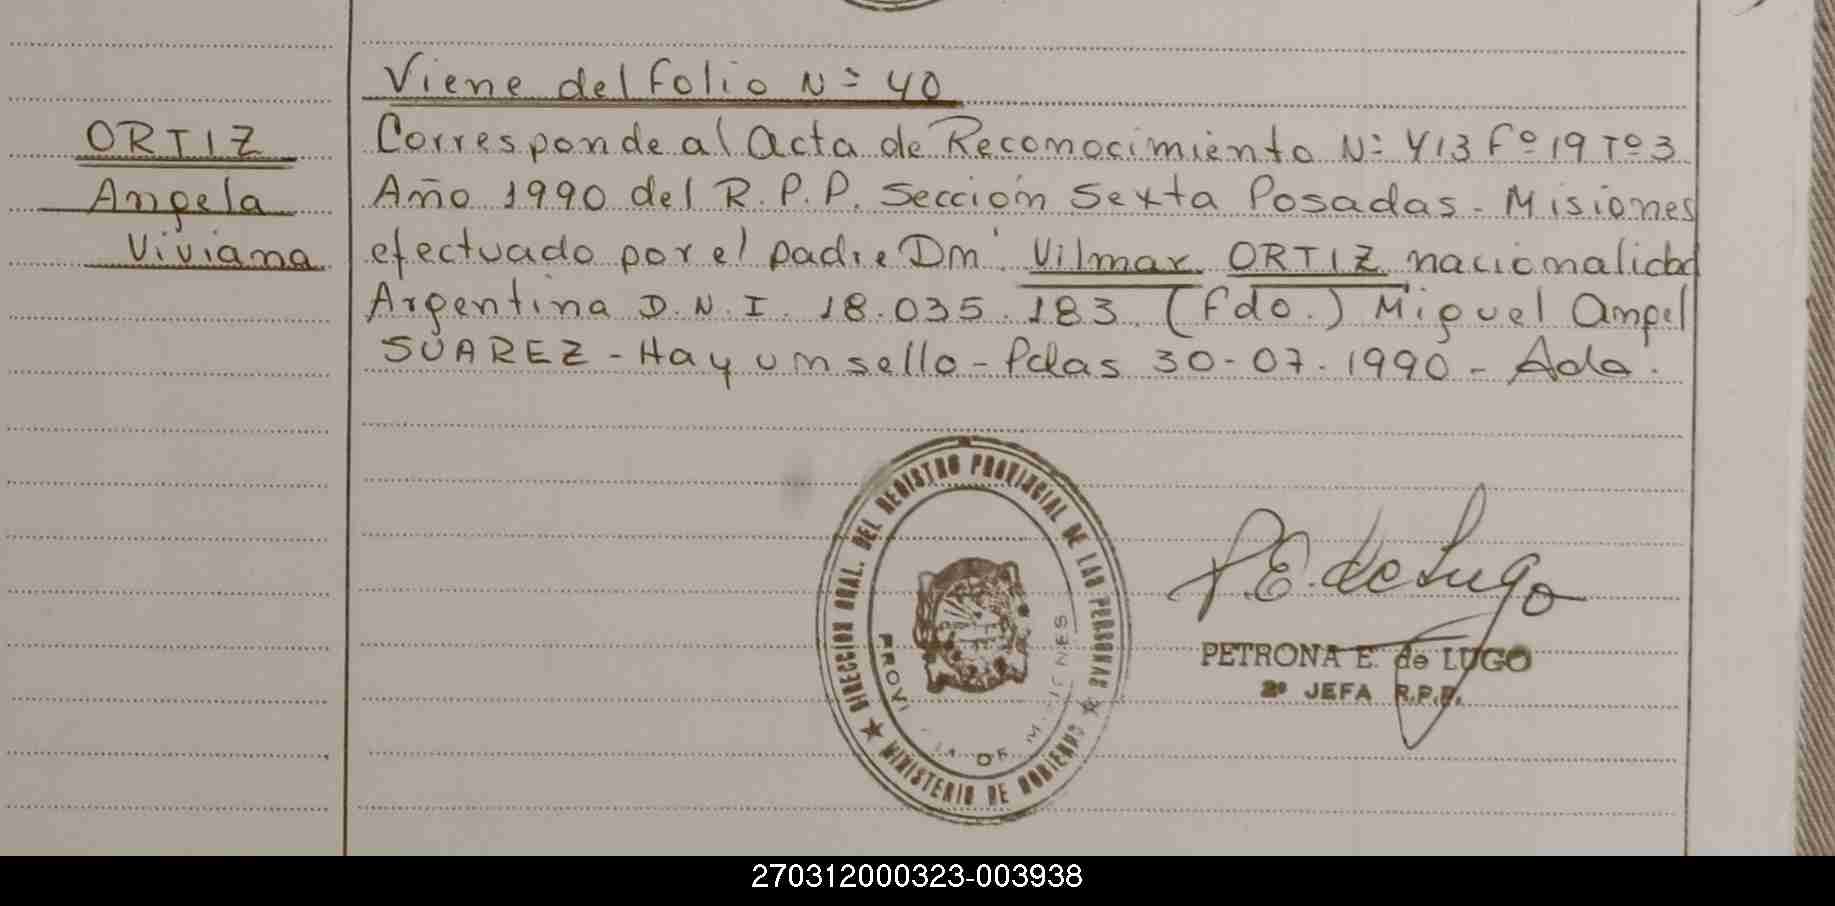 Viene del Folio Nº 40
ORTIZ
Angela
Viviana
Corresponde al Acta de Reconocimiento Nº 413 Fº 19 Tº 3
Año 1990 del R.P.P. Sección Sexta Posadas - Misiones
efectuado por el padre Dn. Vilmar ORTIZ nacionalidad
Argentina D.N.I. 18.035.183. (Fdo.) Miguel Angel
SUAREZ - Hay un sello - Pdas 30-07-1990 -
DIRECCION GRAL. DEL REGISTRO PROVINCIAL DE LAS PERSONAS
MINISTERIO DE GOBIERNO
P.E. de Lugo
PETRONA E. de LUGO
2º JEFA R.P.P.
270312000323-003938